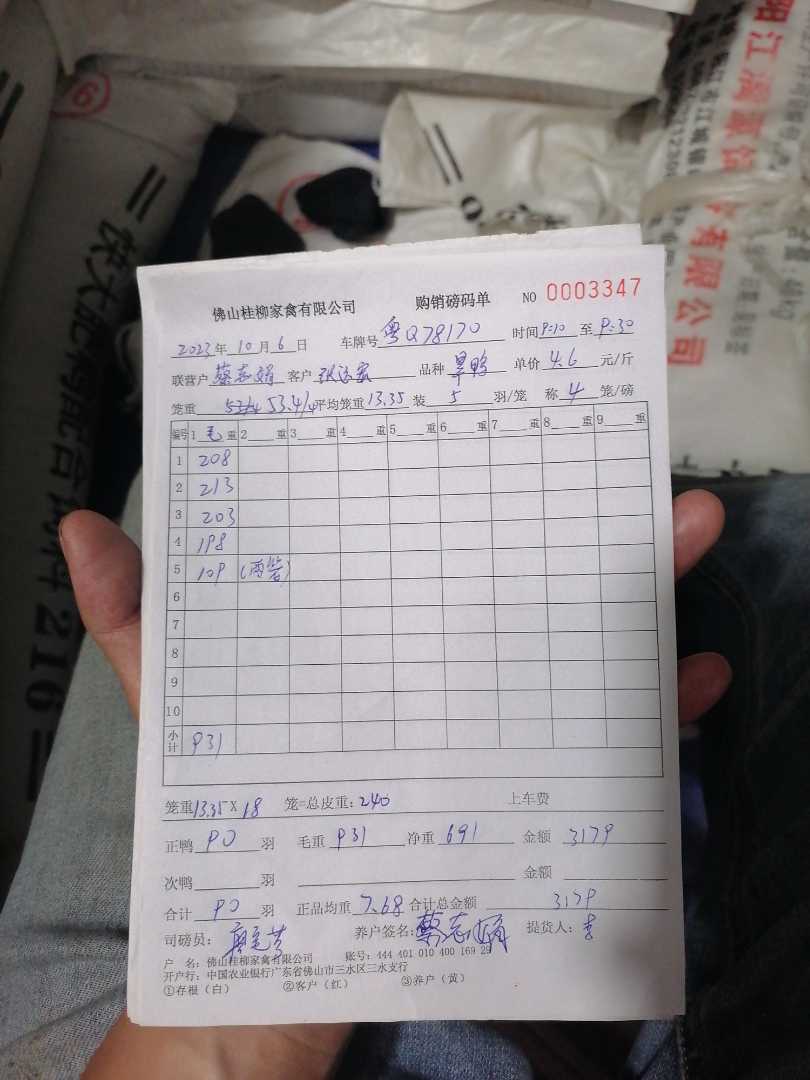 佛山桂柳家禽有限公司 购销磅码单 NO 0003347
2023年10月6日 车牌号粤Q78170 时间9:10至9:30
联营户蔡志娟 客户 品种旱鸭 单价4.6元/斤
笼重 53.4/4 平均笼重13.35 装5羽/笼 称4笼/磅
编号 1毛重 2重 3重 4重 5重 6重 7重 8重 9重
1 208
2 213
3 203
4 198
5 109 (两笼)
6
7
8
9
10
小计 931
笼重13.35×18 笼=总皮重:240 上车费
正鸭90羽 毛重931 净重691 金额3179
次鸭 羽 金额
合计90羽 正品均重7.68 合计总金额3179
司磅员: 养户签名:蔡志娟 提货人:李
户 名:佛山桂柳家禽有限公司 账号:444 401 010 400 169 29
开户行:中国农业银行广东省佛山市三水区三水支行
①存根(白) ②客户(红) ③养户(黄)
有限公司
216